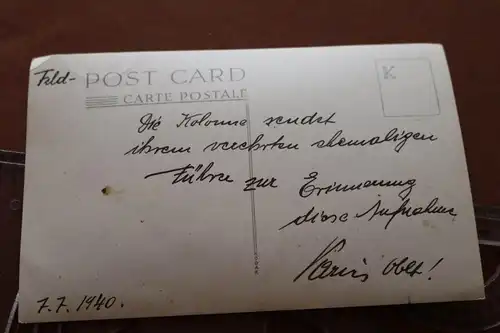 Feld- POST CARD
CARTE POSTALE
K
Die Kolonne sendet
ihrem verehrten ehemaligen
Führer zur Erinnerung
diese Aufnahme
Oblt!
7.7.1940.